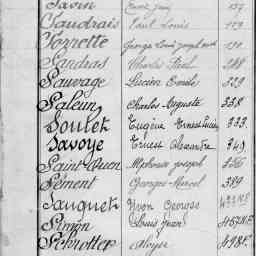 Savin
Saudrais Paul Louis 119
Sozzette Georges Louis Joseph
Sandras Charles Paul 288
Sauvage Lucien Emile 329
Saleun Charles Auguste 338
Soulet Eugène Ernest Lucien 333
Savoye Ernest Alexandre 349
Saint Ouen Alphonse Joseph 356
Sément Georges Marcel 389
Sauquet Yvon Georges
Simon Louis Jean
Schrotter Aloyse